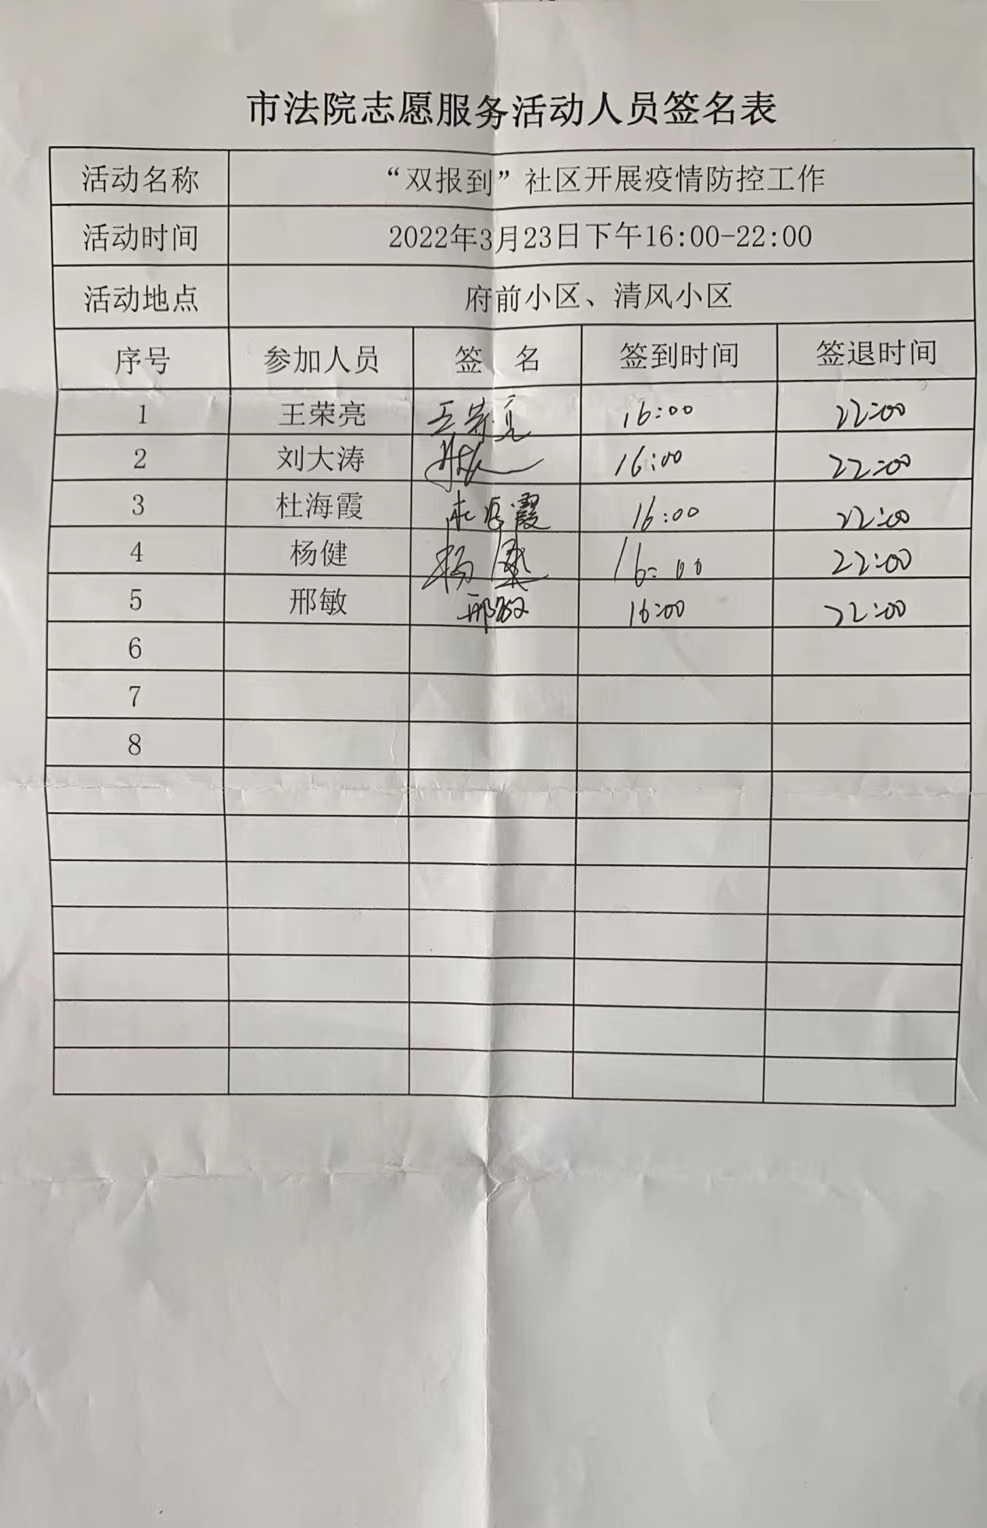 市法院志愿服务活动人员签名表
活动名称 “双报到”社区开展疫情防控工作
活动时间 2022年3月23日下午16:00-22:00
活动地点 府前小区、清风小区
序号 参加人员 签 名 签到时间 签退时间
1 王荣亮 王荣亮 16:00 22:00
2 刘大涛 16:00 22:00
3 杜海霞 杜海霞 16:00 22:00
4 杨健 杨健 16:00 22:00
5 邢敏 邢敏 16:00 22:00
6
7
8